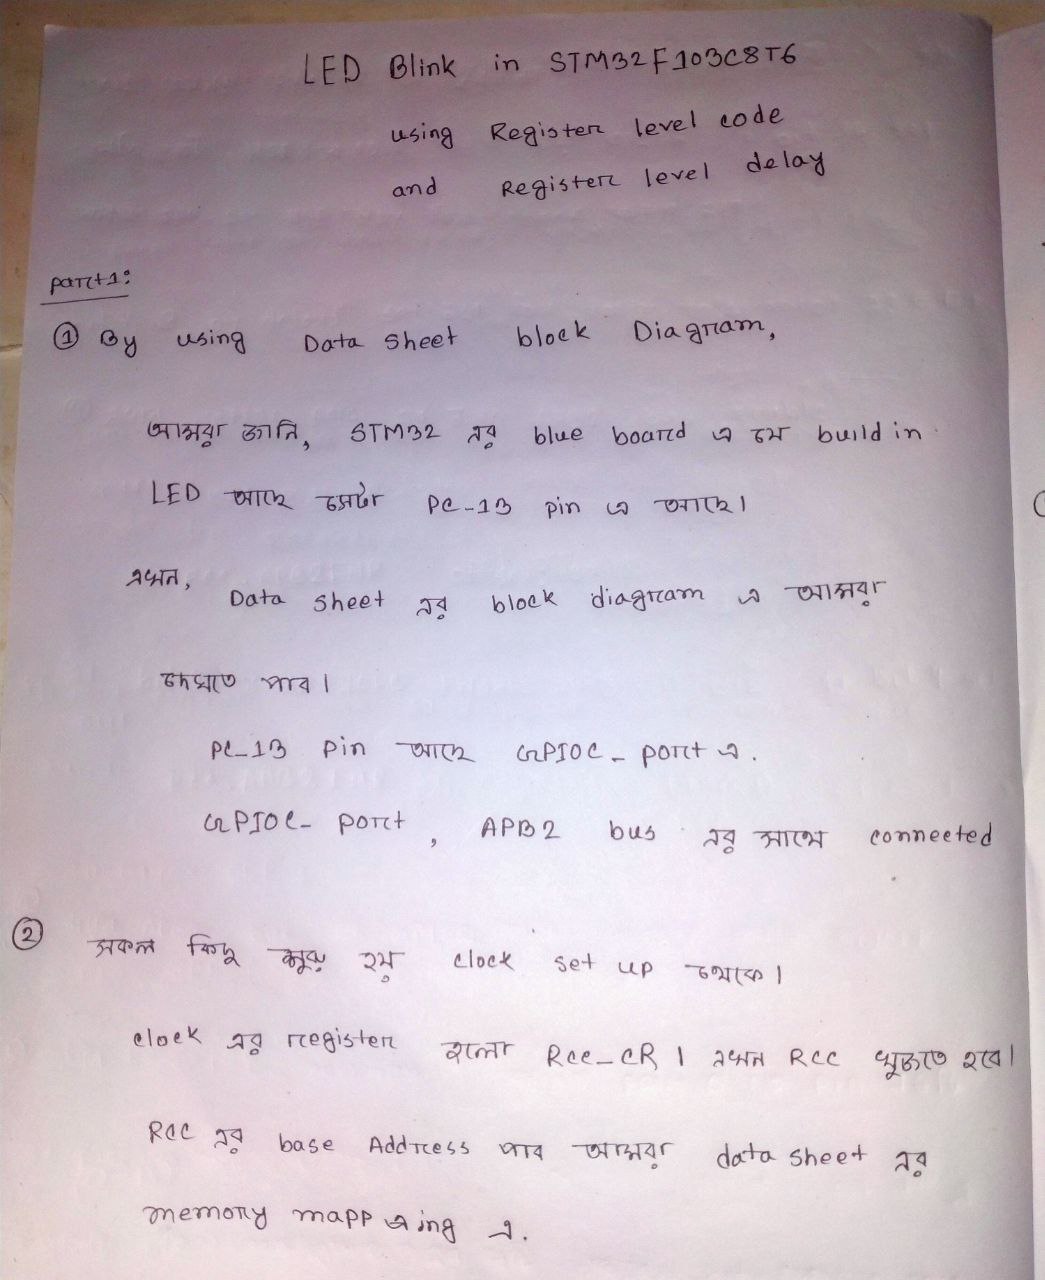 LED Blink in STM32F103C8T6
using Register level code
and Register level delay
part1:
① By using Data sheet block Diagram,
আমরা জানি, STM32 এর blue board এ যে build in
LED আছে সেটা PC-13 pin এ আছে।
এখন,
Data sheet এর block diagram এ আমরা
দেখতে পাব।
PC-13 pin আছে GPIOC - port এ.
GPIOC- port, APB2 bus এর সাথে connected
② সকল কিছু শুরু হয় clock set up থেকে।
clock এর register হলো RCC-CR । এখন RCC খুজতে হবে।
RCC এর base Address পাব আমরা data sheet এর
memory mapping এ.